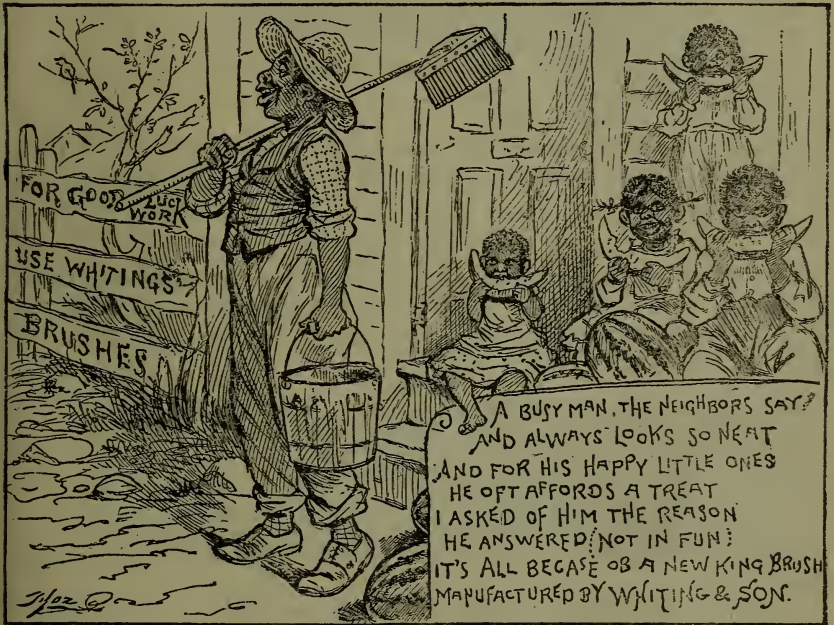 FOR GOOD
WORK
USE WHITINGS
BRUSHES
A BUSY MAN, THE NEIGHBORS SAY!
AND ALWAYS LOOKS SO NEAT
AND FOR HIS HAPPY LITTLE ONES
HE OFT AFFORDS A TREAT
I ASKED OF HIM THE REASON
HE ANSWERED (NOT IN FUN)
IT'S ALL BECASE OB A NEW KING BRUSH
MANUFACTURED BY WHITING & SON.